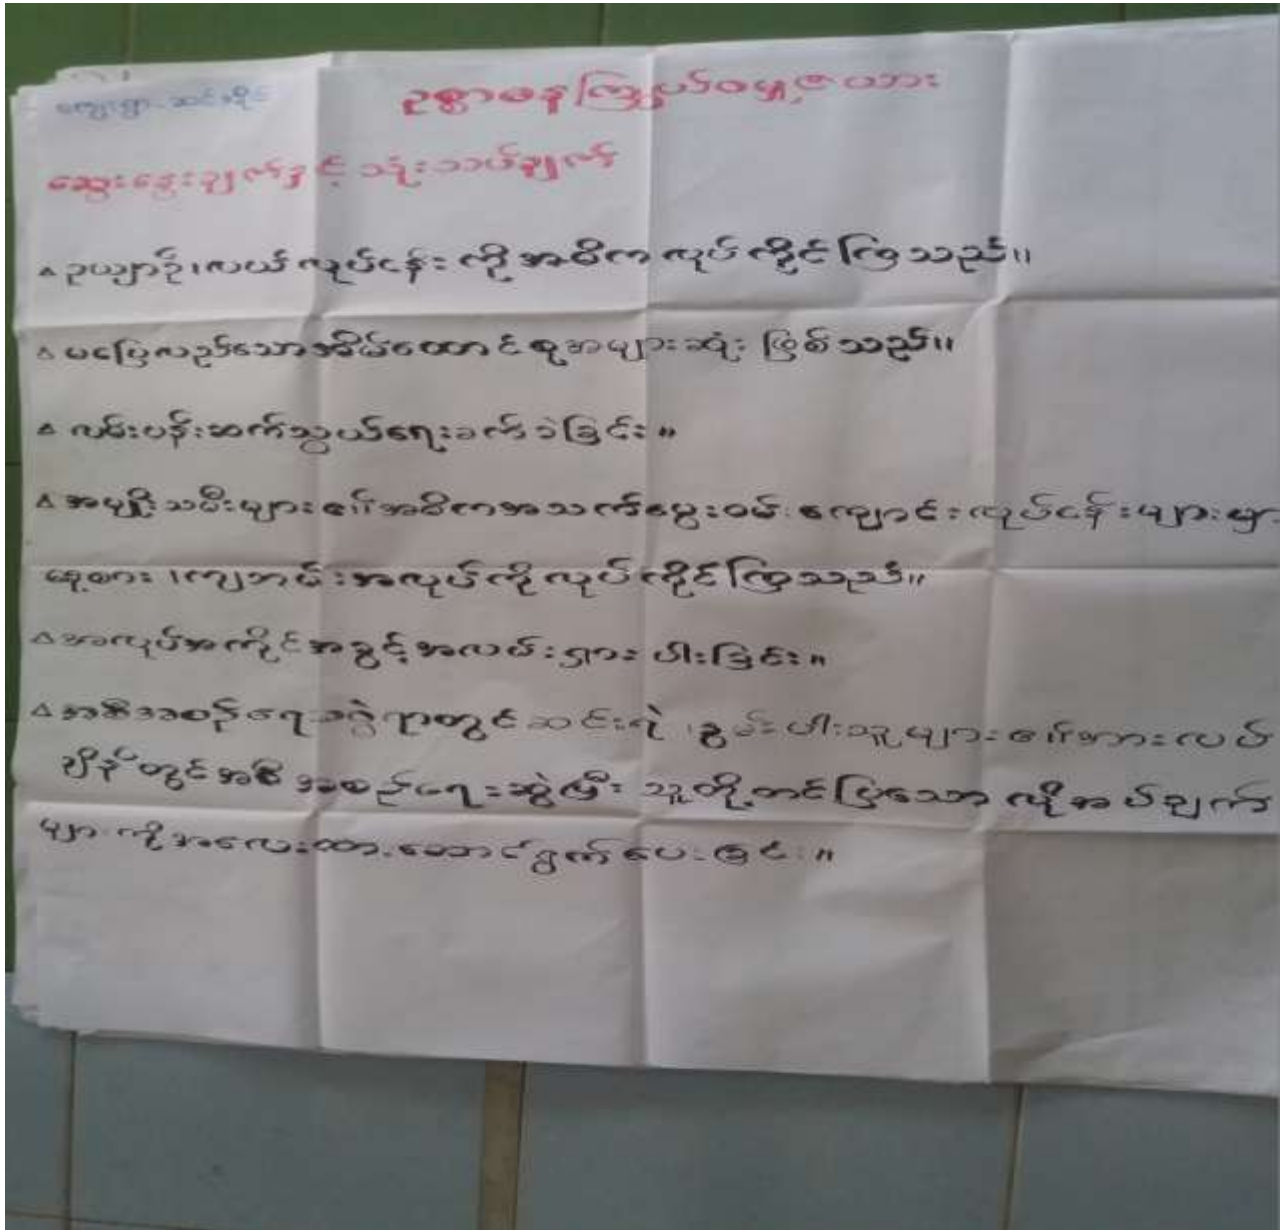 ကျေးရွာ-ဆင်ခိုင် ဥစ္စာဓနကြွယ်ဝမှုဇယား
ဆွေးနွေးချက်နှင့် သုံးသပ်ချက်
△ ဥယျာဉ်၊လယ် လုပ်ငန်းကို အဓိက လုပ်ကိုင်ကြသည်။
△ မပြေလည်သောအိမ်ထောင်စုအများဆုံး ဖြစ်သည်။
△ လမ်းပန်းဆက်သွယ်ရေးခက်ခဲခြင်း။
△ အမျိုးသမီးများ၏အဓိကအသက်မွေးဝမ်းကျောင်းလုပ်ငန်းများမှာ
နေ့စား၊ကျဘမ်းအလုပ်ကိုလုပ်ကိုင်ကြသည်။
△ အလုပ်အကိုင်အခွင့်အလမ်းရှားပါးခြင်း။
△ အစီအစဉ်ရေးဆွဲရာတွင်ဆင်းရဲ နွမ်းပါးသူများ၏အားလပ်
ချိန်တွင်အစီအစဉ်ရေးဆွဲပြီး သူတို့တင်ပြသော လိုအပ်ချက်
များကိုအလေးထားဆောင်ရွက်ပေးခြင်း။